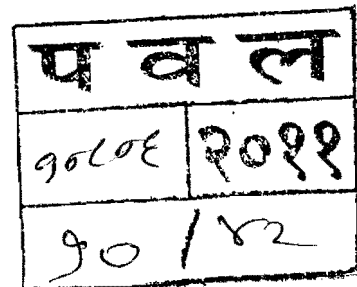 प व ल
१०८०६ २०११
१०/४२